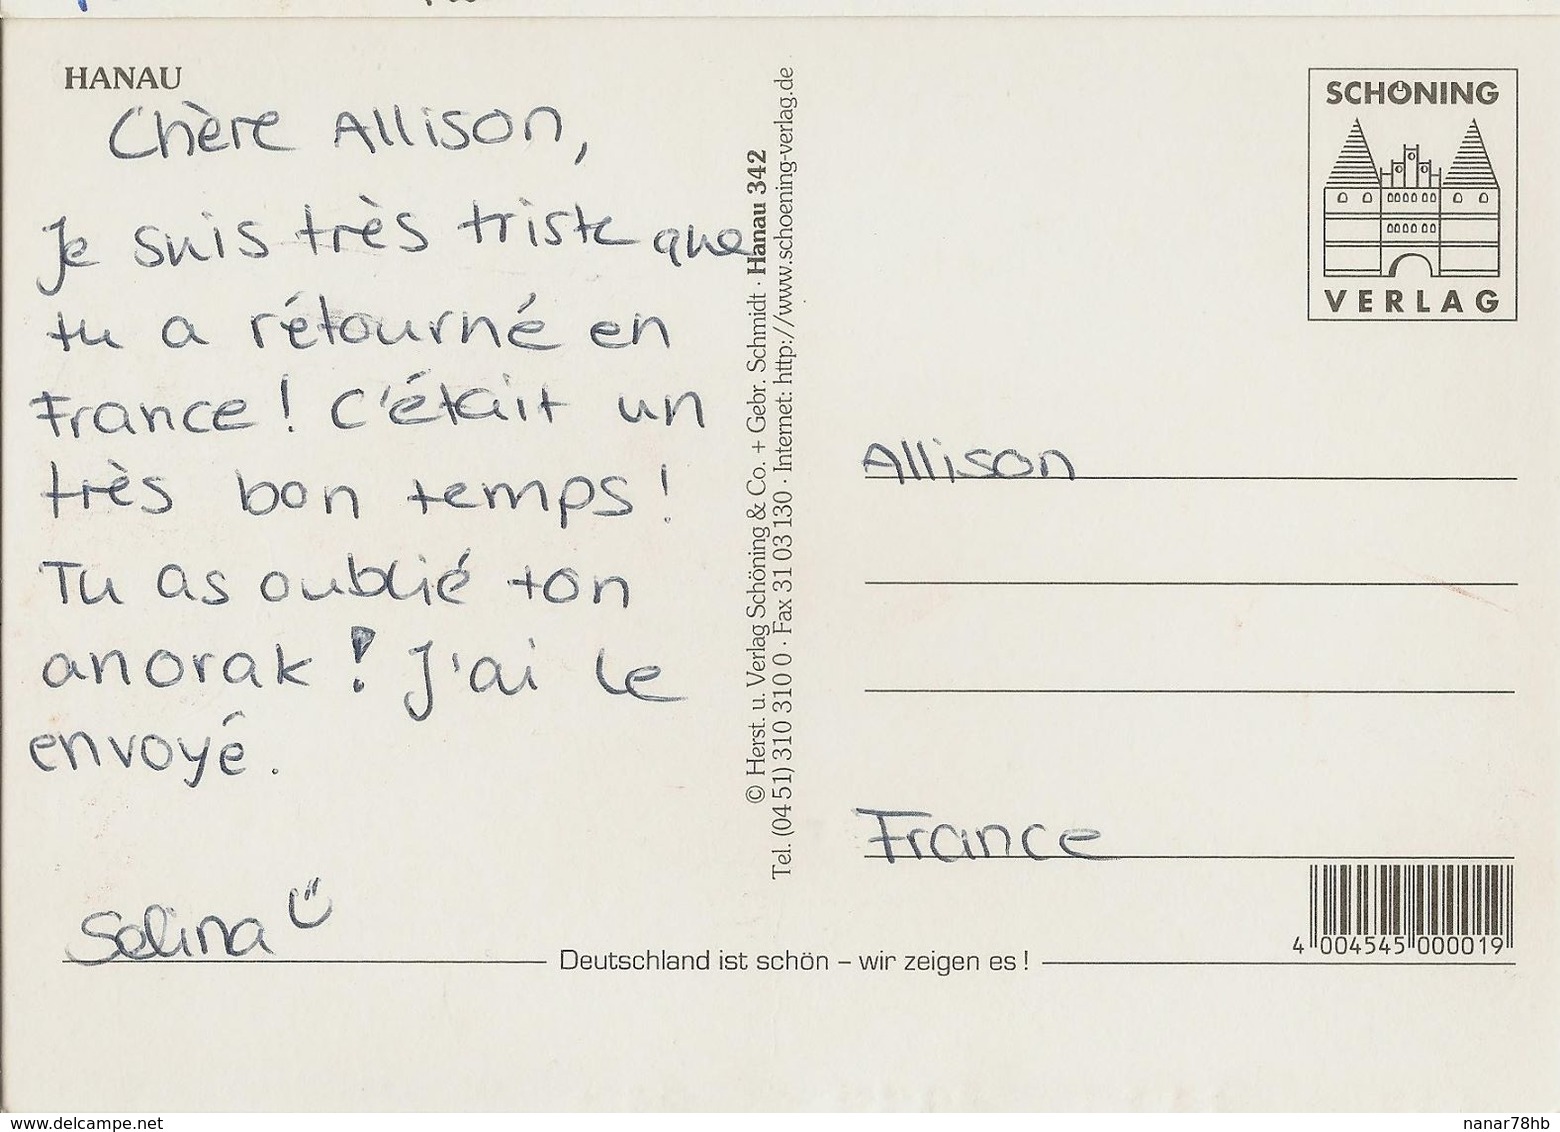 HANAU
Chère Allison,
Je suis très triste que
tu a rétourné en
France! C'était un
très bon temps!
Tu as oublié ton
anorak! J'ai le
envoyé.
Selina
© Herst. u. Verlag Schöning & Co. + Gebr. Schmidt · Hanau 342
Tel. (04 51) 310 310 0 · Fax 31 03 130 · Internet: http://www.schoening-verlag.de
SCHÖNING
VERLAG
Allison
France
4 004545 000019
Deutschland ist schön – wir zeigen es !
nanar78hb